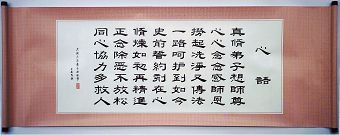 心語
真脩弟子想師尊
心心念念感師恩
撈起洗淨又傳法
一路呵护到如今
史前誓約刻在心
脩煉如初再精進
正念除惡不放松
同心協力多救人